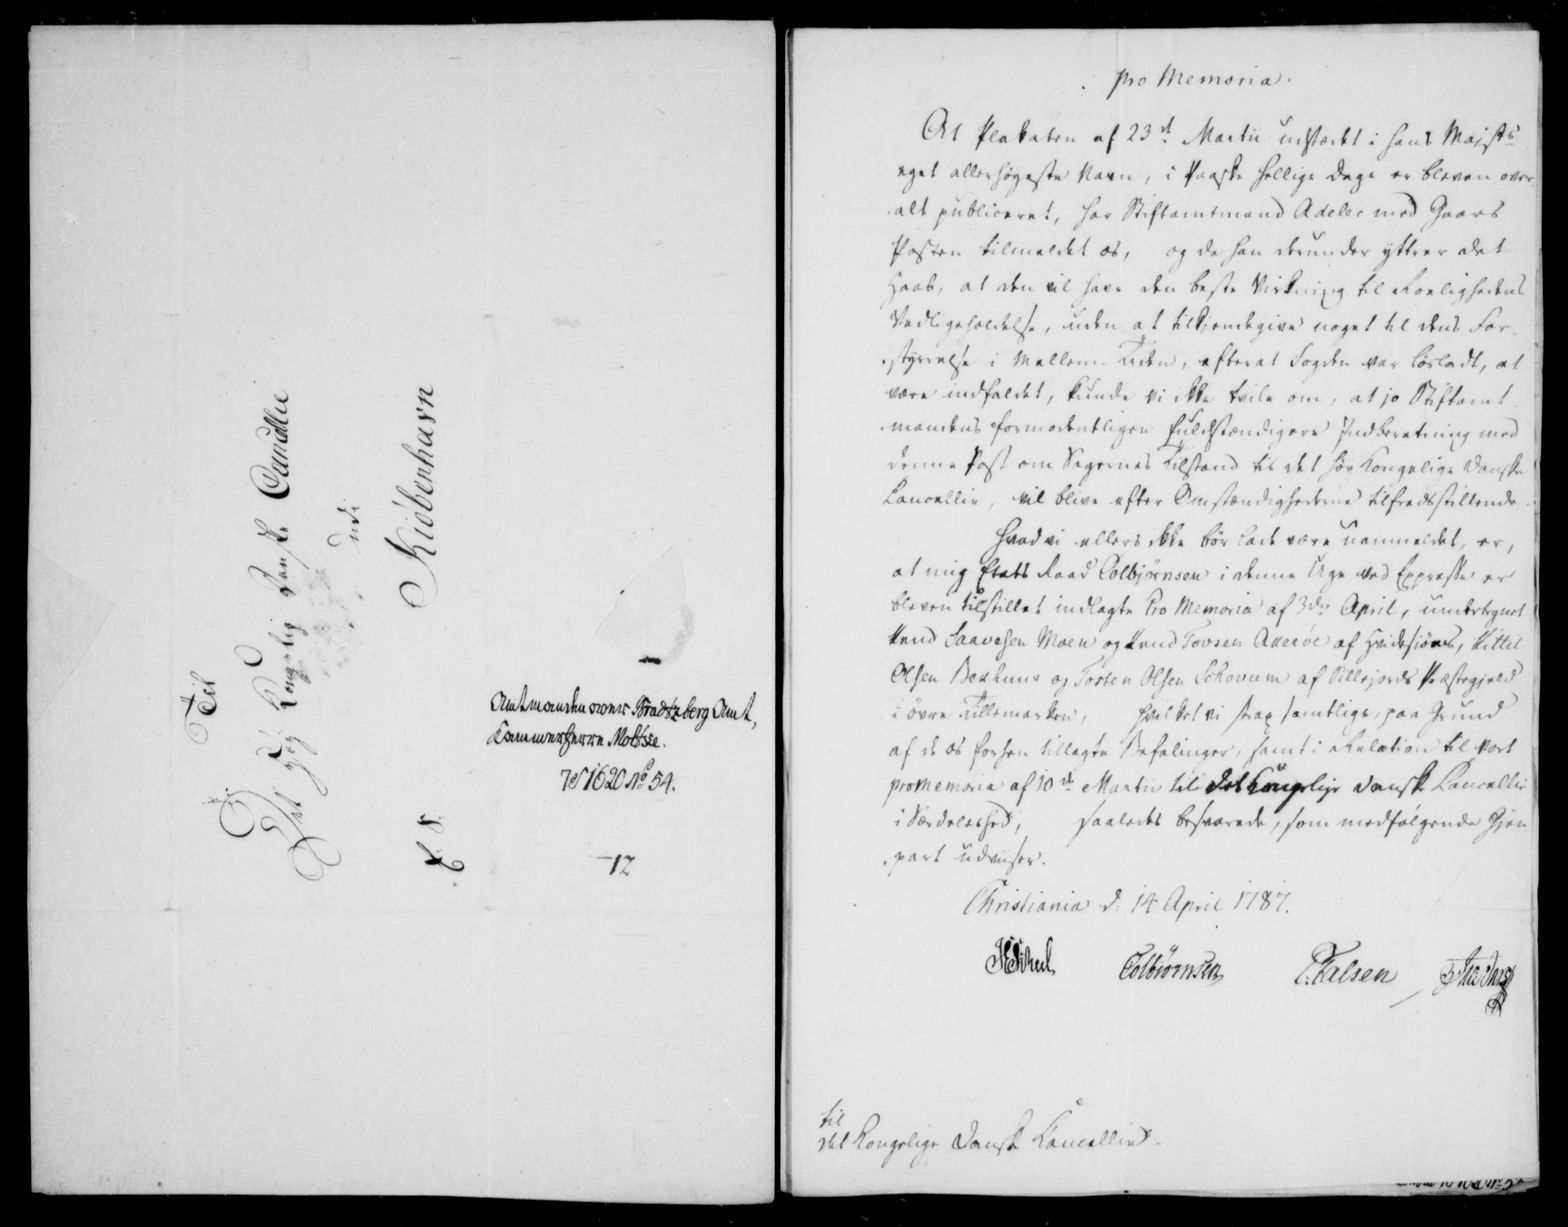 Til
Det høy Kongelig Danske Cancellie
udi
Kiøbenhavn
Amtmanden over Bradtzberg Amt,
Kammerherre Moltke.
1620 No 54.
12
pro Memoria.
At Plakaten af 23d Martii udstædt i Hans Majsts
eget allerhøyeste Navn, i Paaske Hellige Dage er bleven over
alt publiceret, har Stiftamtmand Adeler med Gaars
Posten tilmeldet os, og da han derunder yttrer det
Haab, at den vil have den beste Virkning til Roelighedens
Vedligeholdelse, uden at tilkjendegive noget til dens For-
styrrelse i Mellem-Tiden, efterat Fogden var losladt, at
være indfaldet, kunde vi ikke tvile om, at jo Stiftamt-
mandens formodentligen fuldstændigere Indberetning med
denne Post om Sagernes Tilstand til det høy Kongelige Danske
Cancellie, vil blive efter Omstændighederne tilfredsstillende.
Hvad vi ellers ikke bør lade være uanmeldet, er,
at mig Etats Raad Colbjørnsen i denne Uge ved Expresse er
bleven tilstillet indlagte Pro Memoria af 3die April, undertegnet
Knud Saavesen Moen og Knud Tovsen af Hvidesiøns, Kittil
Olsen og Torsten Olsen af Sillejords Præstegjeld
i øvre Tillemarken, hvilket vi strax samtlige, paa Grund
af de os forhen tillagte Befalinger, samt i Relation til vort
promemoria af 10de Martii til det Kongelige Danske Cancellie
i Særdeleshed, saaledes besvarede, som medfølgende Gjen-
part udviser.
Christiania d: 14 April 1787.
Colbiørnsen
E. Falsen
til
det Kongelige Danske Cancellie.